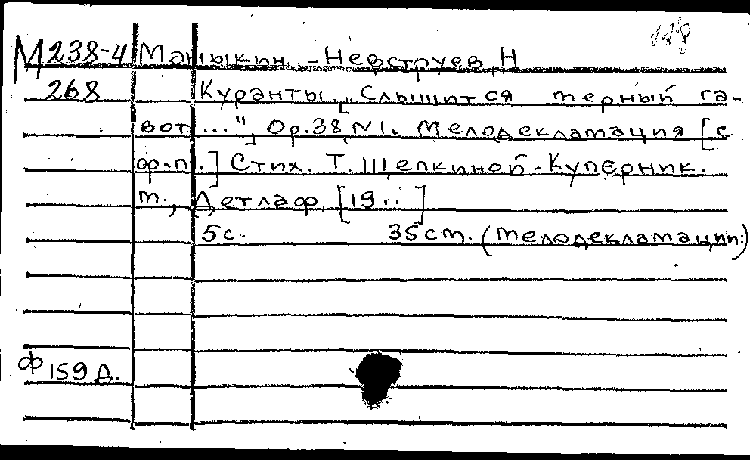 М238-4 Маныкин-Невструев, Н
268 Куранты. ["Слышится мерный га-
вот..."], Op.38, N1. Мелодекламация [с
ф.-п.] Стих. Т. Щепкиной-Куперник.
м., Детлаф [19..]
5с. 35см. (мелодекламации)
Ф 159 д.